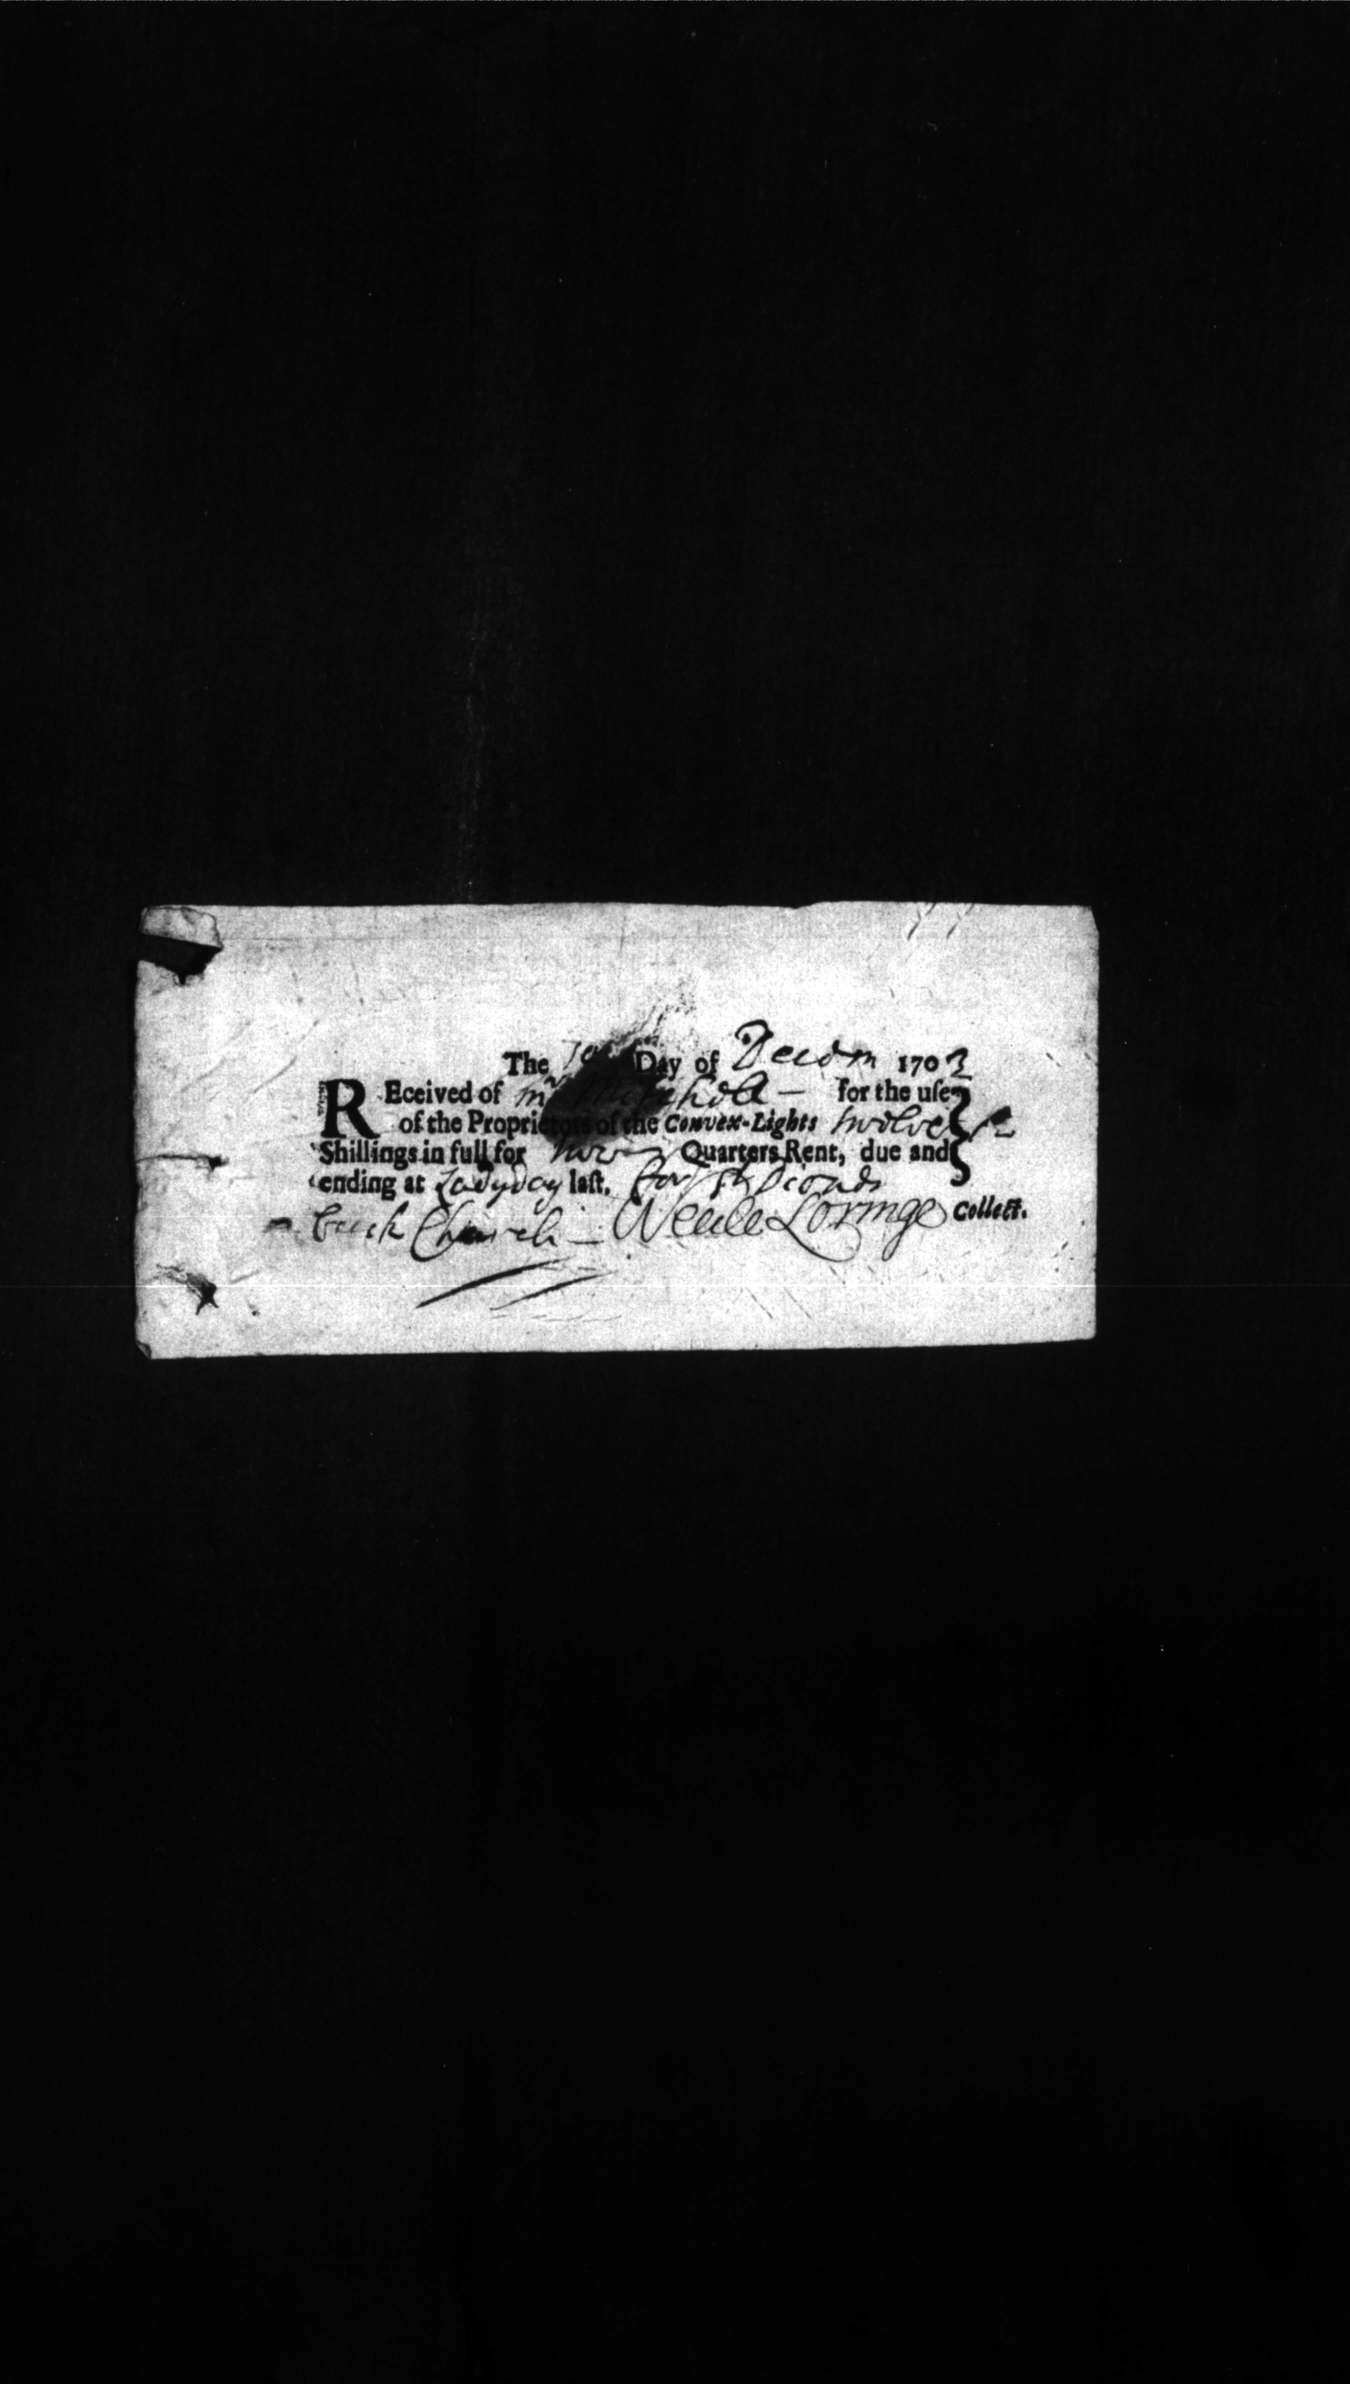 The Day of Decem 1703
REceived of mr for the uſe
of the Proprietors of the Convex-Lights twelve
Shillings in full for two Quarters Rent, due and
ending at Ladyday laſt.
Church — Neale Loringe Collect.